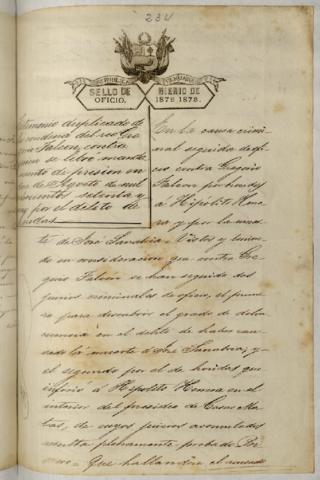 234
SELLO DE
OFICIO.
BIENIO DE
1878 1879.
Testimonio duplicado de
condena del reo Gre
Falcon, contra
quien se libró manda
miento de prision en
de Agosto de mil
ochocientos setenta y
por el delito de
heridas
En la causa crimi
nal seguida de ofi
cio contra Gregorio
Falcon por heridas
á Hipólito Hene
ra y por la muer
te de José Sanabria. Vistos y tenien
do en consideracion que contra Gre
gorio Falcon se han seguido dos
juicios criminales de oficio, el prime
ro para descubrir el grado de delin
cuencia en el delito de haber cau
sado la muerte á José Sanabria, y
el segundo por el de heridas que
infirió á Hipólito Henera en el
interior del presidio de Casas Ma
tas, de cuyos juicios acumulados
resulta plenamente probado: Pri
mero. Que hallandose el acusado